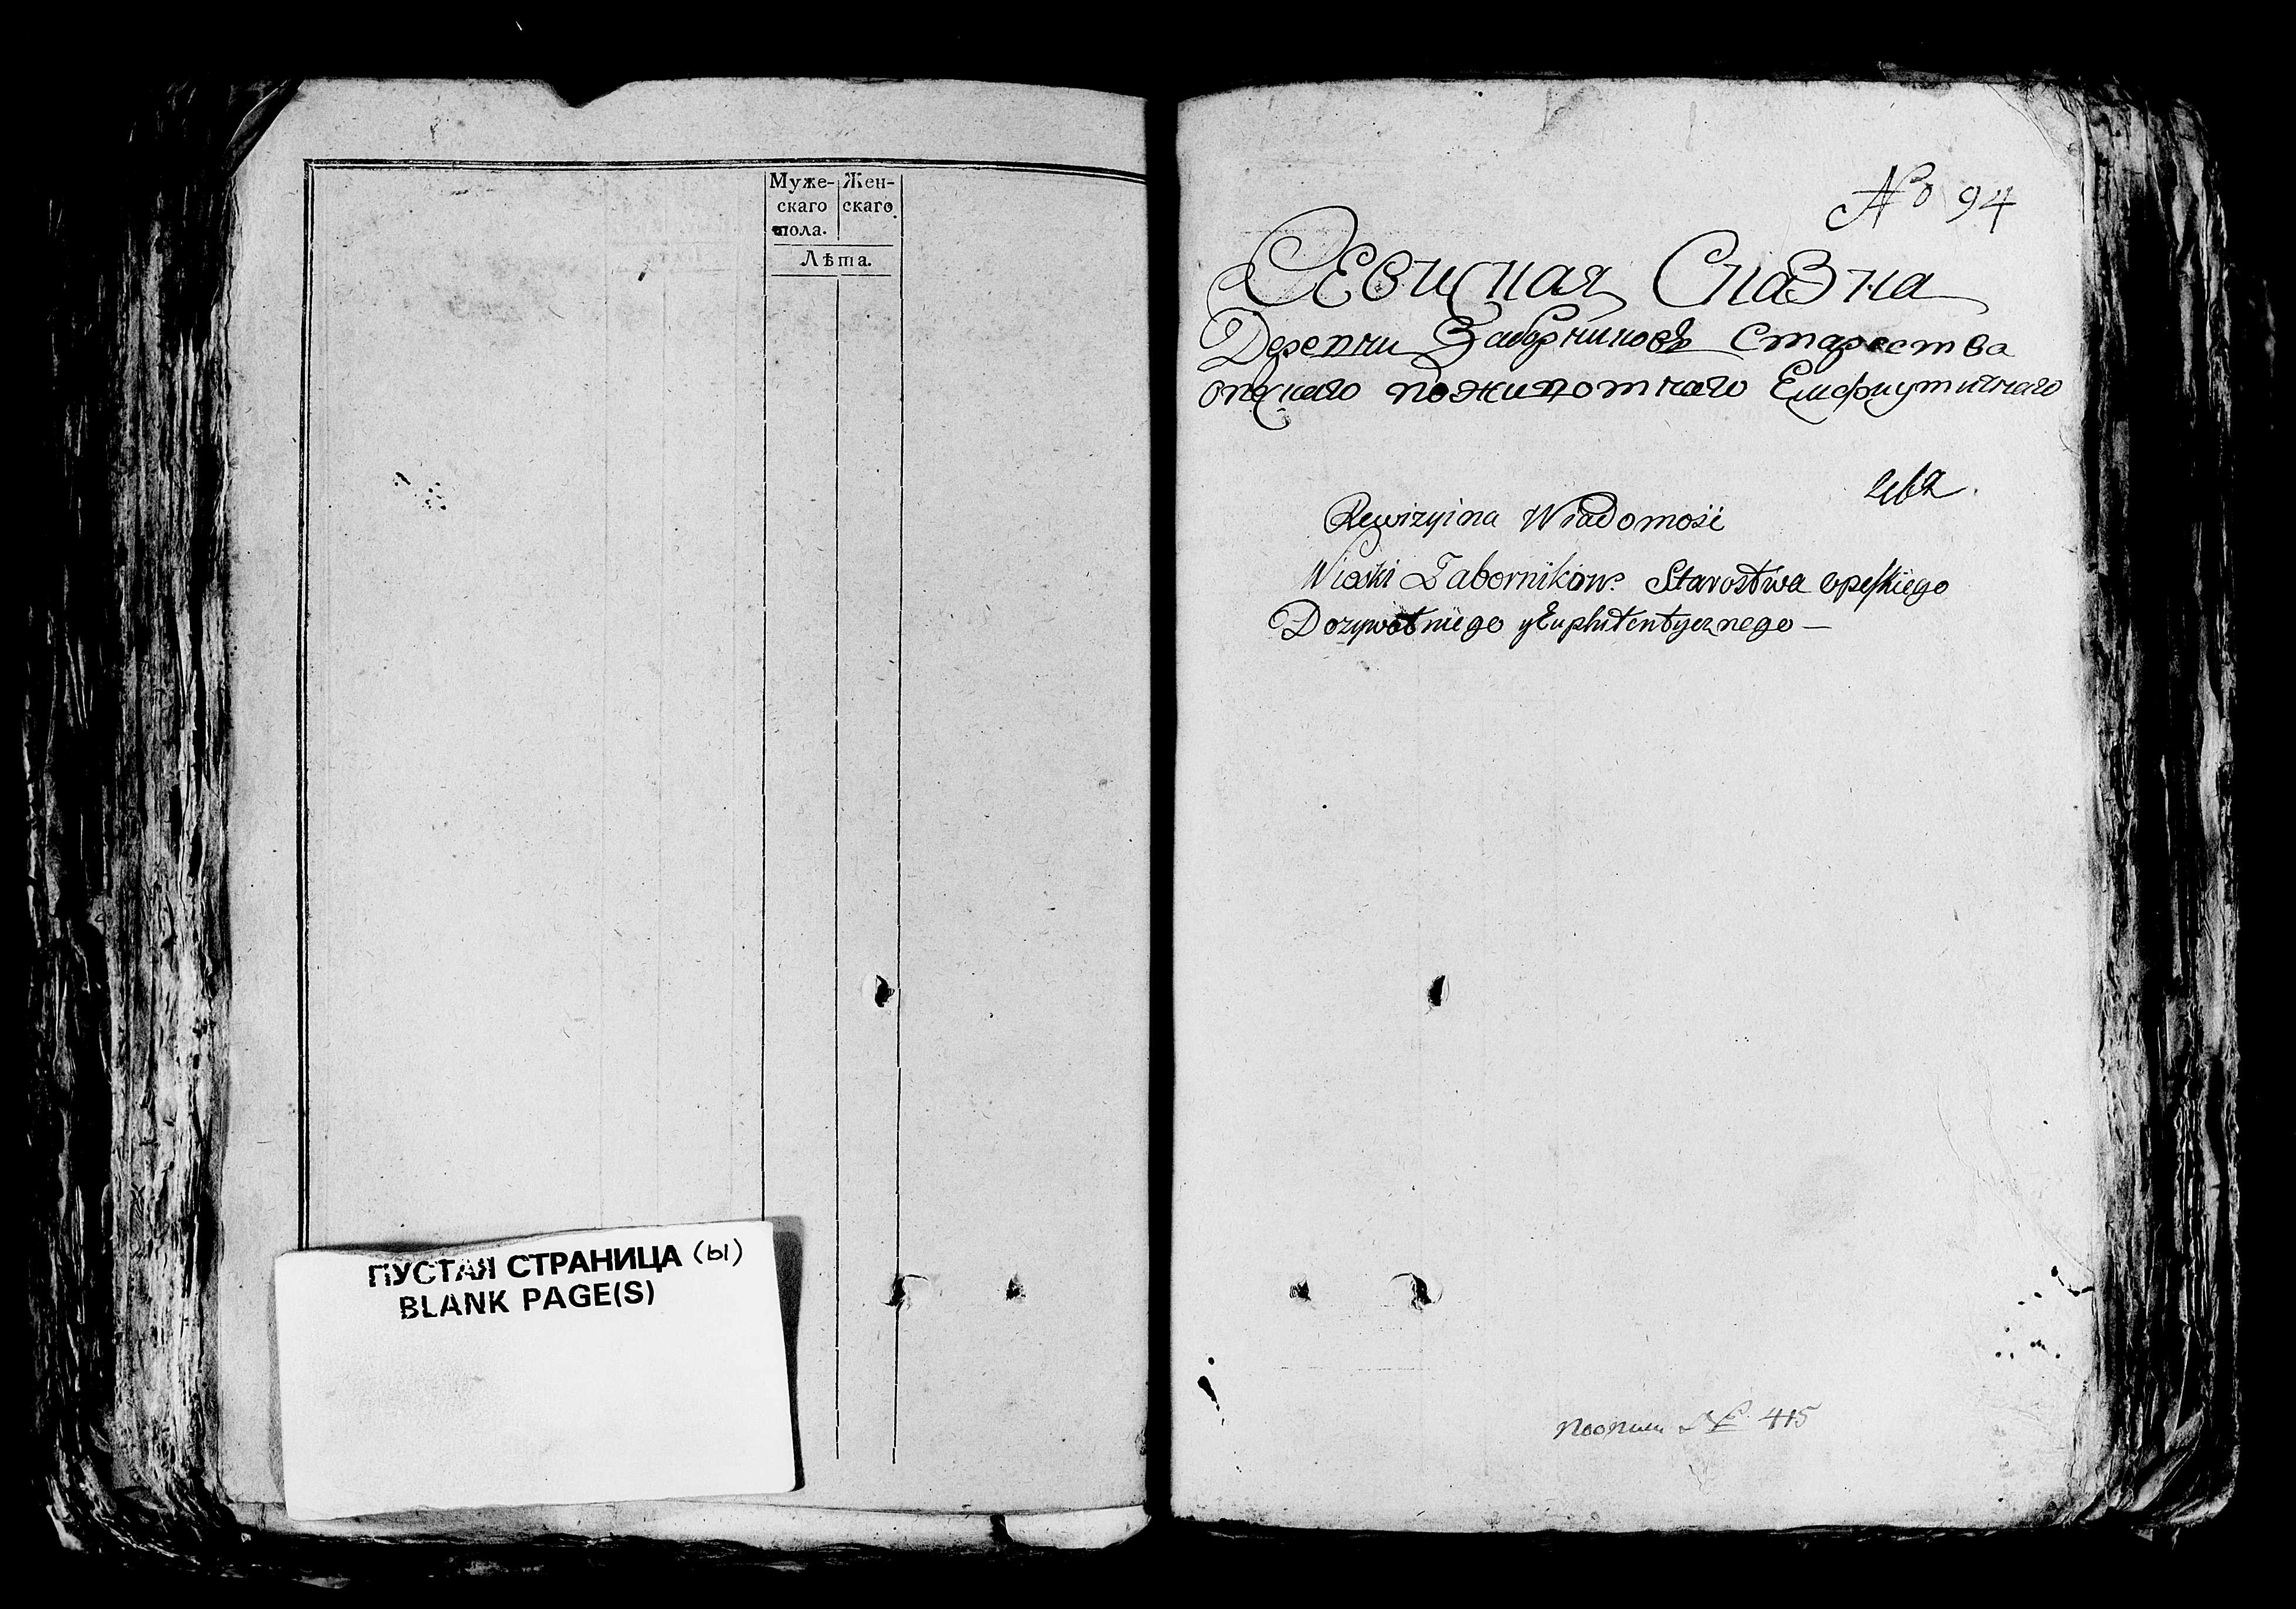 Муже- Жен-
скаго скаго
пола.
Лѣта.
ПУСТАЯ СТРАНИЦА (ы)
BLANK PAGE(S)
№ 94
Ревиская Сказка
Деревни Заборниковъ Староства
опескаго поживотнаго Емфитутичнаго
Rewizyina Wiadomość
Wioski Zabornikow Starostwa opeskiego
Dozywotniego y Euphitentycznego —
№ 415